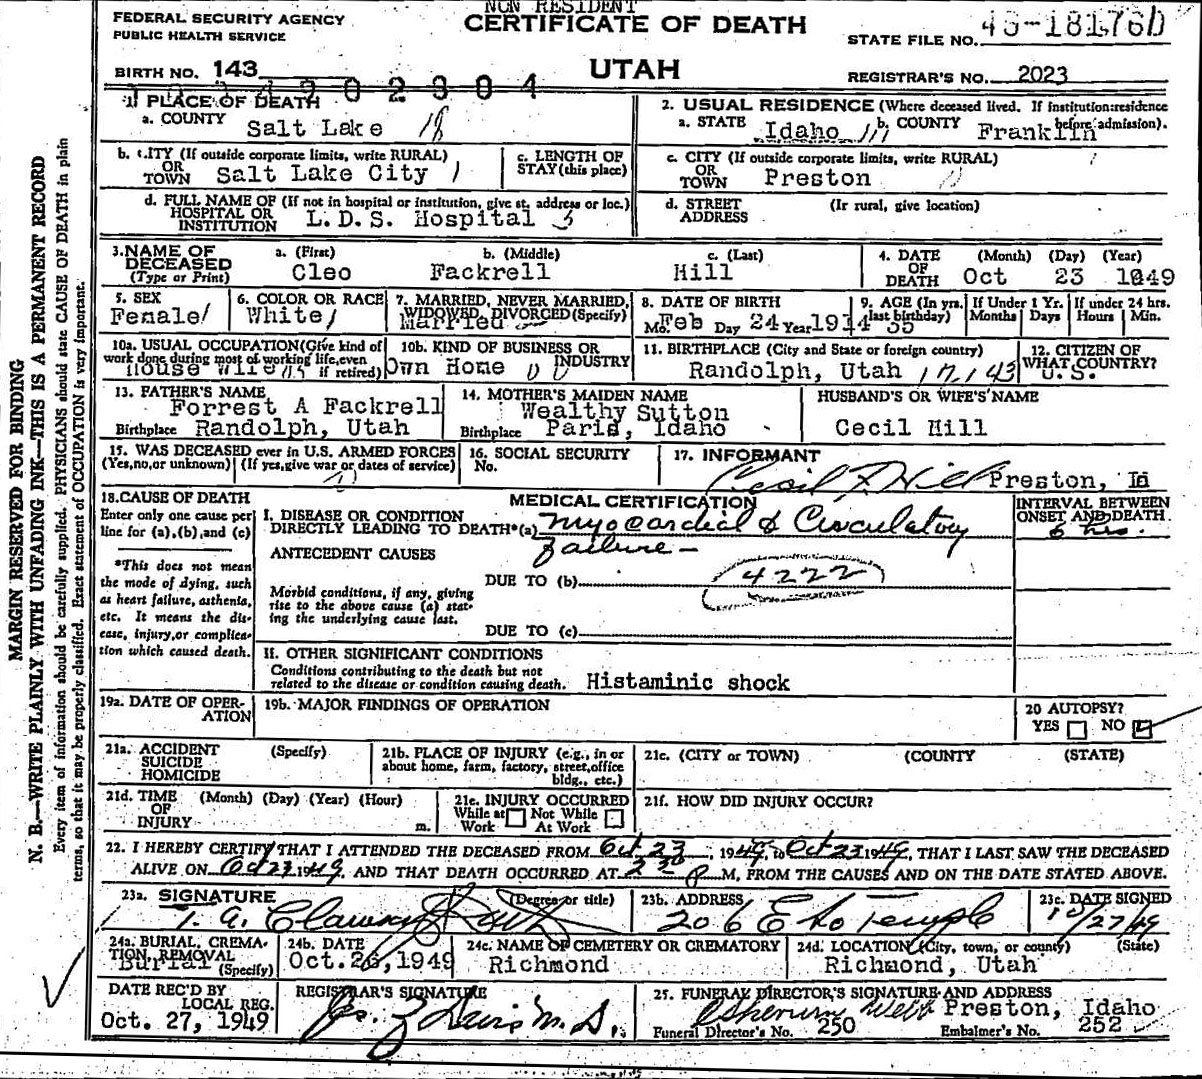 NON RESIDENT
FEDERAL SECURITY AGENCY
PUBLIC HEALTH SERVICE
CERTIFICATE OF DEATH
STATE FILE NO.
BIRTH NO. 143
UTAH
REGISTRAR'S NO. 2023
1. PLACE OF DEATH
a. COUNTY Salt Lake 18
2. USUAL RESIDENCE (Where deceased lived. If institution:residence before admission).
a. STATE Idaho b. COUNTY Franklin
b. CITY (If outside corporate limits, write RURAL)
OR TOWN Salt Lake City 1
c. LENGTH OF STAY (this place)
c. CITY (If outside corporate limits, write RURAL)
OR TOWN Preston
d. FULL NAME OF (If not in hospital or institution, give st. address or loc.)
HOSPITAL OR INSTITUTION L.D.S. Hospital 3
d. STREET ADDRESS (If rural, give location)
3. NAME OF DECEASED (Type or Print)
a. (First) Cleo
b. (Middle) Fackrell
c. (Last) Hill
4. DATE OF DEATH (Month) (Day) (Year)
Oct 23 1949
5. SEX
Female
6. COLOR OR RACE
White
7. MARRIED, NEVER MARRIED, WIDOWED, DIVORCED (Specify)
Married
8. DATE OF BIRTH
Mo. Feb Day 24 Year 1914
9. AGE (In yrs. last birthday) 35
If Under 1 Yr. Months Days
If under 24 hrs. Hours Min.
10a. USUAL OCCUPATION (Give kind of work done during most of working life, even if retired)
House Wife
10b. KIND OF BUSINESS OR INDUSTRY
Own Home
11. BIRTHPLACE (City and State or foreign country)
Randolph, Utah 143
12. CITIZEN OF WHAT COUNTRY?
U.S.
13. FATHER'S NAME
Forrest A Fackrell
Birthplace Randolph, Utah
14. MOTHER'S MAIDEN NAME
Wealthy Sutton
Birthplace Paris, Idaho
HUSBAND'S OR WIFE'S NAME
Cecil Hill
15. WAS DECEASED ever in U.S. ARMED FORCES
(Yes, no, or unknown) (If yes, give war or dates of service)
16. SOCIAL SECURITY No.
17. INFORMANT
Cecil F. Hill Preston, Id
18. CAUSE OF DEATH
Enter only one cause per line for (a), (b), and (c)
*This does not mean the mode of dying, such as heart failure, asthenia, etc. It means the disease, injury, or complication which caused death.
MEDICAL CERTIFICATION
INTERVAL BETWEEN ONSET AND DEATH
I. DISEASE OR CONDITION
DIRECTLY LEADING TO DEATH*(a) Myocardial & Circulatory
failure -
6 hrs.
ANTECEDENT CAUSES
DUE TO (b) 4222
Morbid conditions, if any, giving rise to the above cause (a) stating the underlying cause last.
DUE TO (c)
II. OTHER SIGNIFICANT CONDITIONS
Conditions contributing to the death but not related to the disease or condition causing death. Histaminic shock
19a. DATE OF OPERATION
19b. MAJOR FINDINGS OF OPERATION
20 AUTOPSY?
YES NO
21a. ACCIDENT SUICIDE HOMICIDE (Specify)
21b. PLACE OF INJURY (e.g., in or about home, farm, factory, street, office bldg., etc.)
21c. (CITY or TOWN) (COUNTY) (STATE)
21d. TIME OF INJURY (Month) (Day) (Year) (Hour) m.
21e. INJURY OCCURRED
While at Work Not While At Work
21f. HOW DID INJURY OCCUR?
22. I HEREBY CERTIFY THAT I ATTENDED THE DECEASED FROM Oct 23, 1949, to Oct 23 1949, THAT I LAST SAW THE DECEASED
ALIVE ON Oct 23 1949, AND THAT DEATH OCCURRED AT 2 30 P M, FROM THE CAUSES AND ON THE DATE STATED ABOVE.
23a. SIGNATURE (Degree or title)
T. A. Clawson
23b. ADDRESS
206 E So Temple
23c. DATE SIGNED
10/27/49
24a. BURIAL, CREMATION, REMOVAL (Specify)
Burial
24b. DATE
Oct. 26, 1949
24c. NAME OF CEMETERY OR CREMATORY
Richmond
24d. LOCATION (City, town, or county) (State)
Richmond, Utah
DATE REC'D BY LOCAL REG.
Oct. 27, 1949
REGISTRAR'S SIGNATURE
25. FUNERAL DIRECTOR'S SIGNATURE AND ADDRESS
Webb Preston, Idaho
Funeral Director's No. 250 Embalmer's No. 252
MARGIN RESERVED FOR BINDING
N. B.—WRITE PLAINLY WITH UNFADING INK—THIS IS A PERMANENT RECORD
Every item of information should be carefully supplied. PHYSICIANS should state CAUSE OF DEATH in plain
terms, so that it may be properly classified. Exact statement of OCCUPATION is very important.